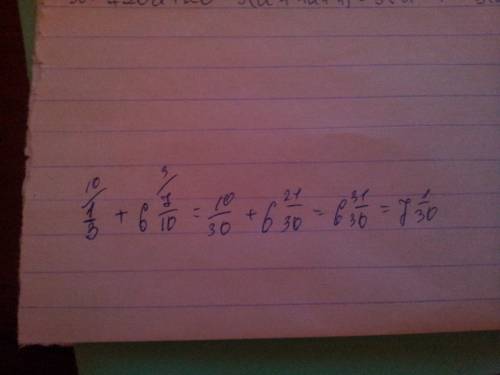 1/3 + 6 7/10 = 10/30 + 6 21/30 = 6 31/30 = 7 1/30